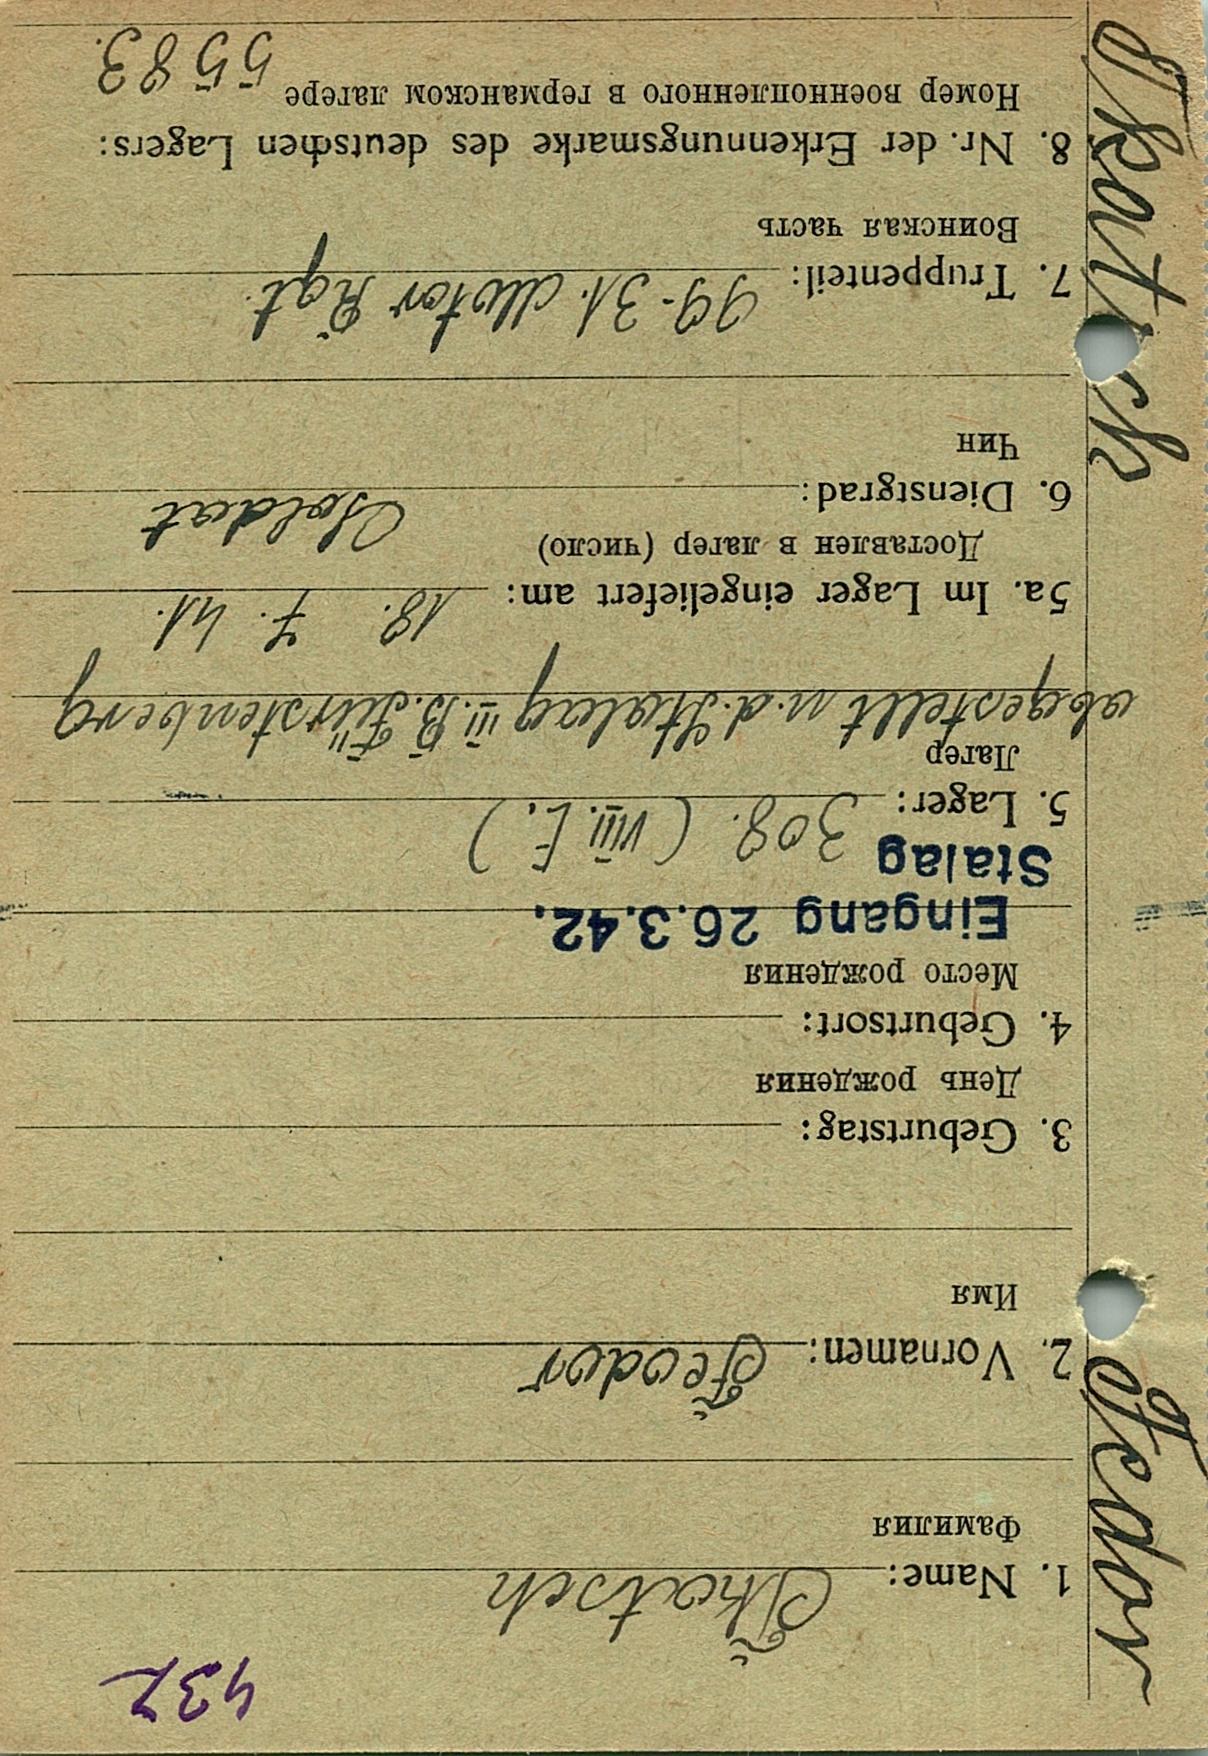 437
1. Name: Tkatsch
Фамилия
2. Vornamen: Feodor
Имя
3. Geburtstag:
День рождения
4. Geburtsort:
Место рождения
Eingang 26.3.42.
Stalag
5. Lager: 308. (VIII. E.)
Лагер
abgestellt n.d. Stalag III. B. Fürstenberg
5a. Im Lager eingeliefert am: 18. 7. 41.
Доставлен в лагер (число)
6. Dienstgrad: Soldat
Чин
7. Truppenteil: 99-31. Motor Rgt.
Воинская часть
8. Nr. der Erkennungsmarke des deutschen Lagers:
Номер военнопленного в германском лагере 5583.
Tkatsch Fedor